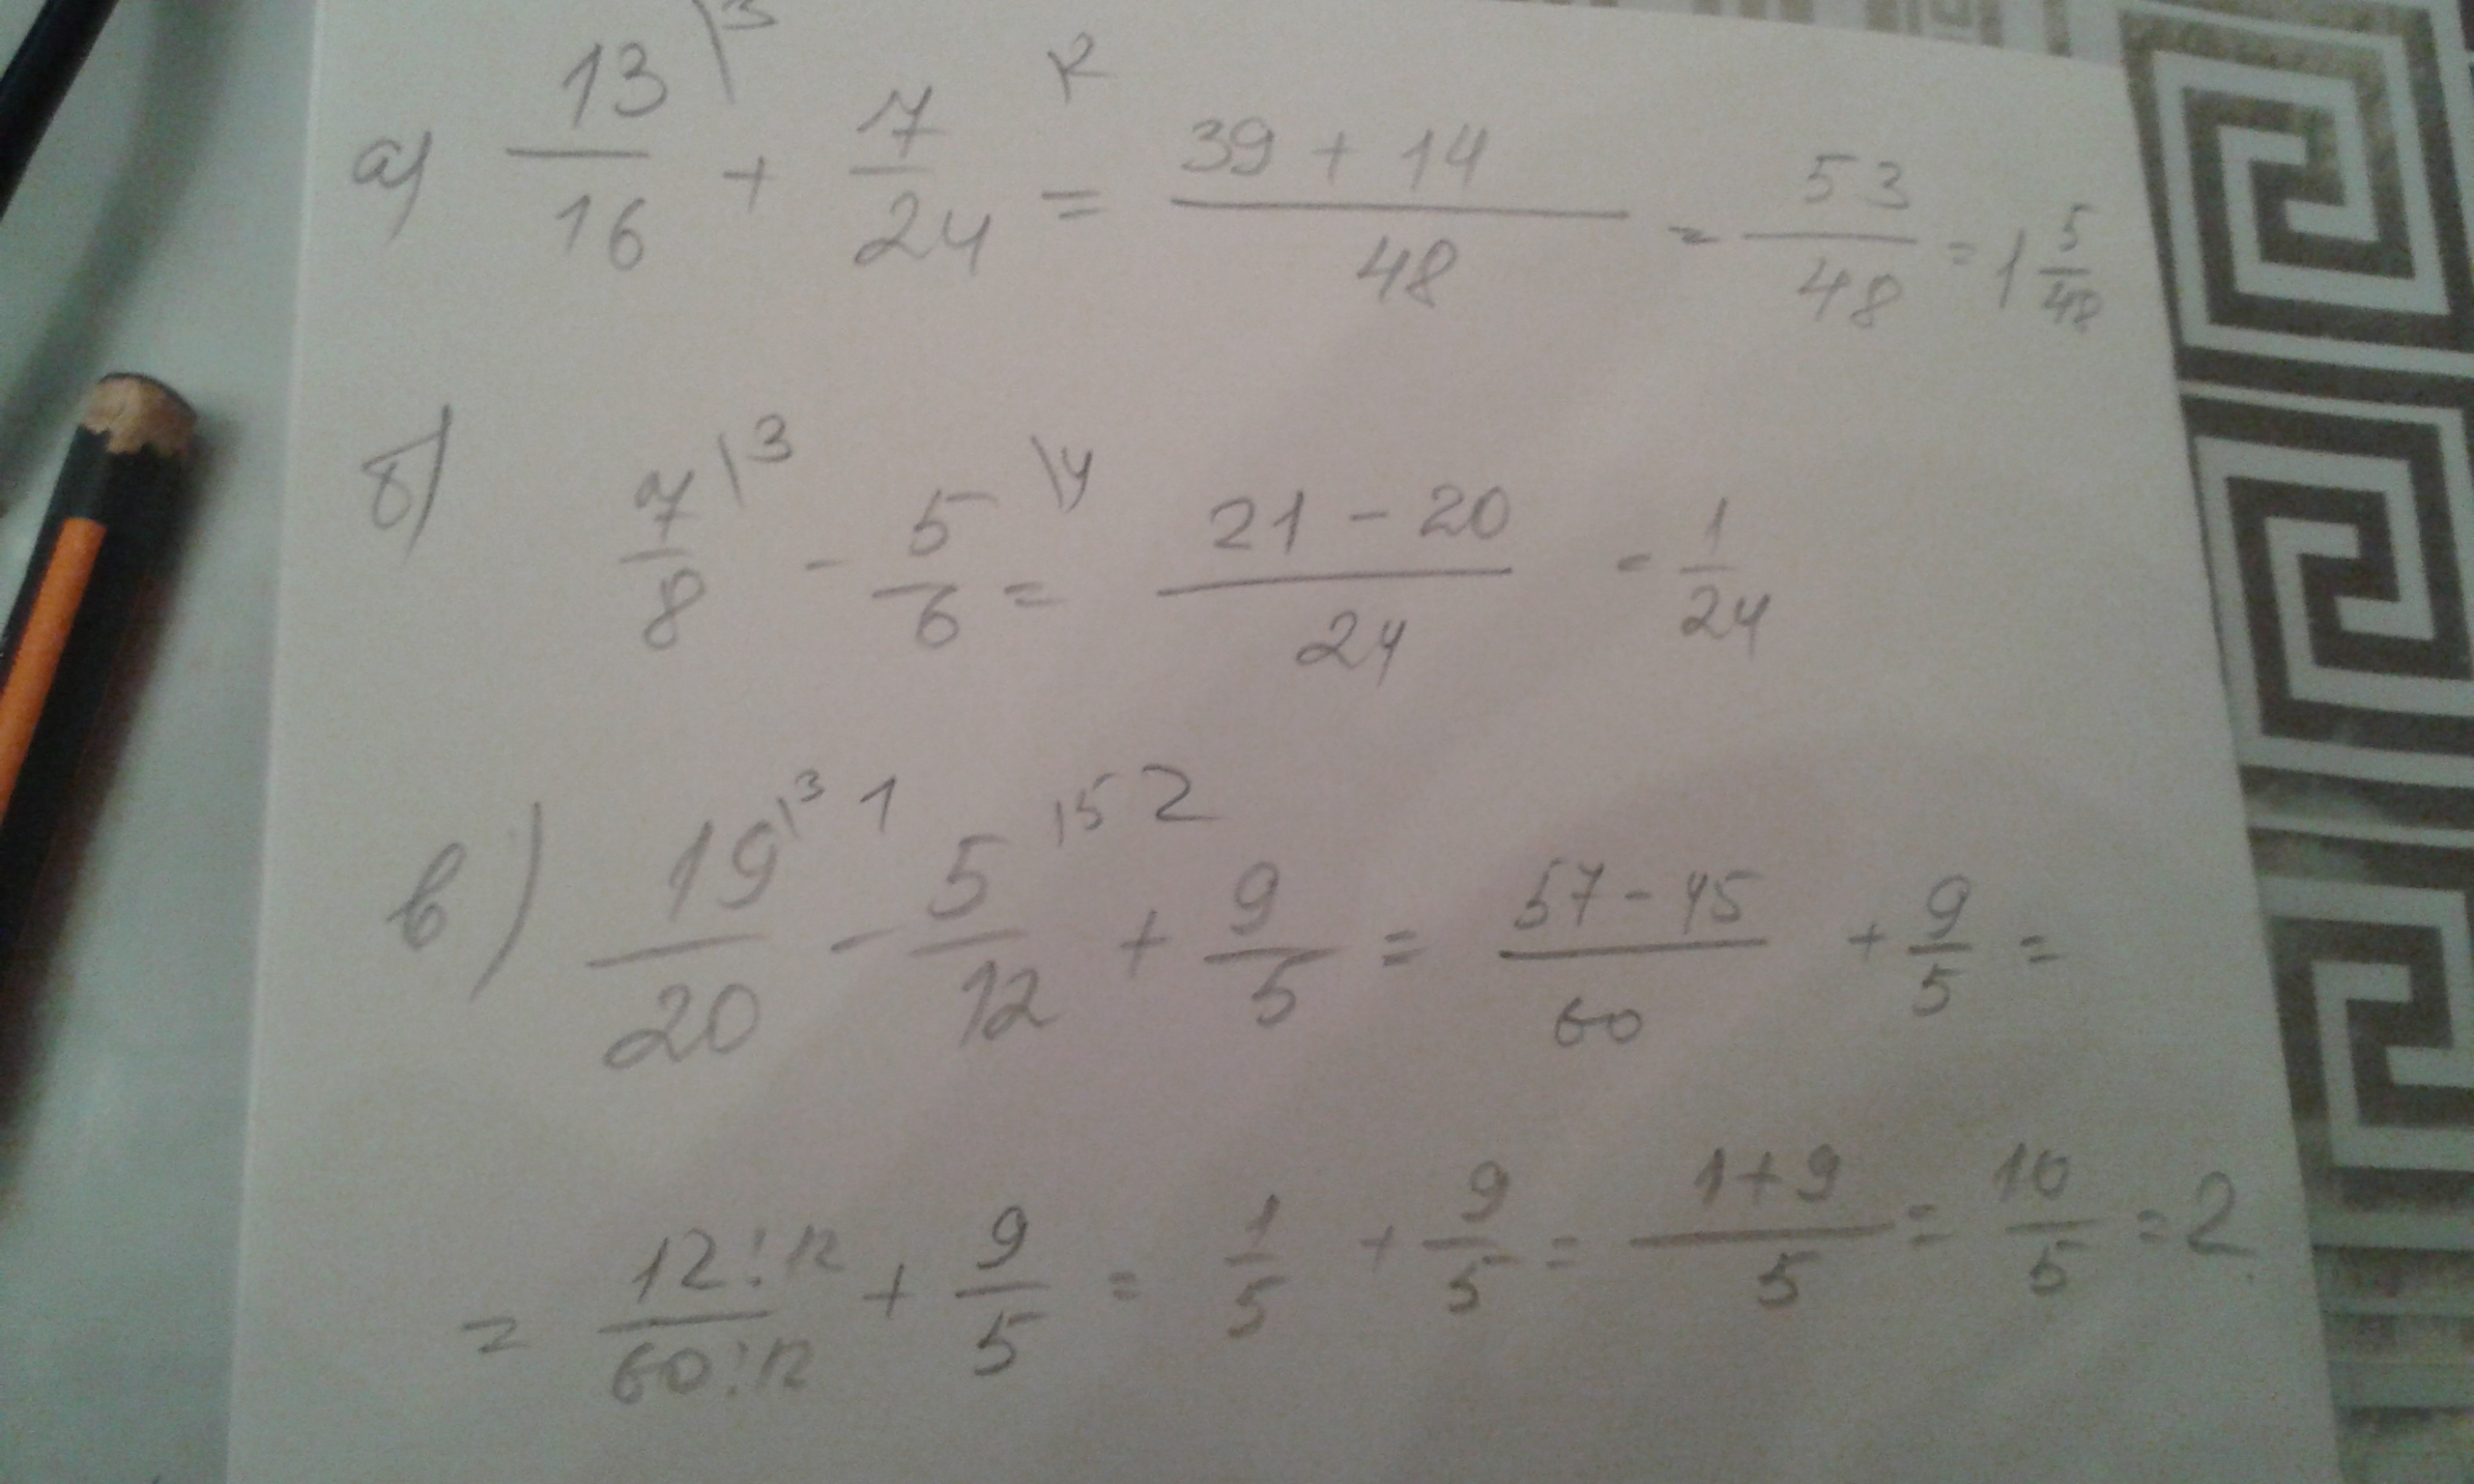 а) 13/16 \3 + 7/24 \2 = 39 + 14/48 = 53/48 = 1 5/48
б) 7/8 \3 - 5/6 \4 = 21 - 20/24 = 1/24
в) 19/20 \3 1 - 5/12 \5 2 + 9/5 = 57 - 45/60 + 9/5 =
= 12:12/60:12 + 9/5 = 1/5 + 9/5 = 1+9/5 = 10/5 = 2